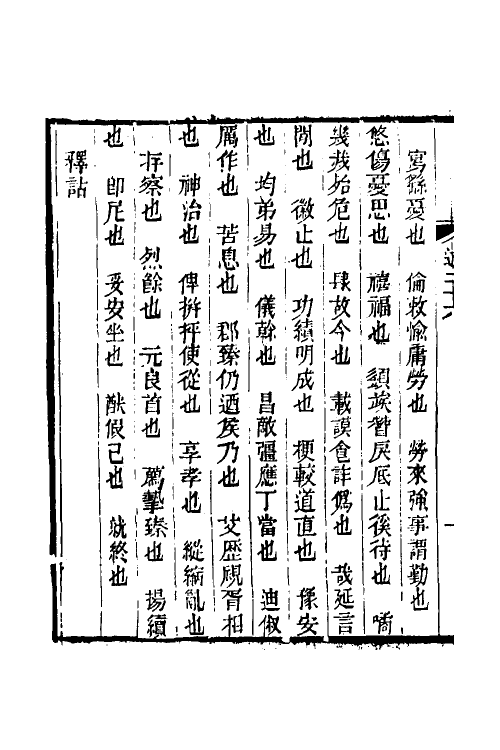 寫繇憂也　倫敕愉庸勞也　勞來強事謂勤也
悠傷憂思也　禧福也　顉竢替戾底止徯待也　噊
幾烖殆危也　肆故今也　載謨食詐僞也　哉延言
閒也　徽止也　功績明成也　梗較道直也　豫安
也　均弟易也　儀榦也　昌敵彊應丁當也　迪俶
厲作也　苦息也　郡臻仍迺侯乃也　艾歷覛胥相
也　神治也　俾拚抨使從也　享孝也　縱縮亂也
存察也　烈餘也　元良首也　薦摯臻也　揚續
也　卽尼也　妥安坐也　酞假已也　就終也
釋詁